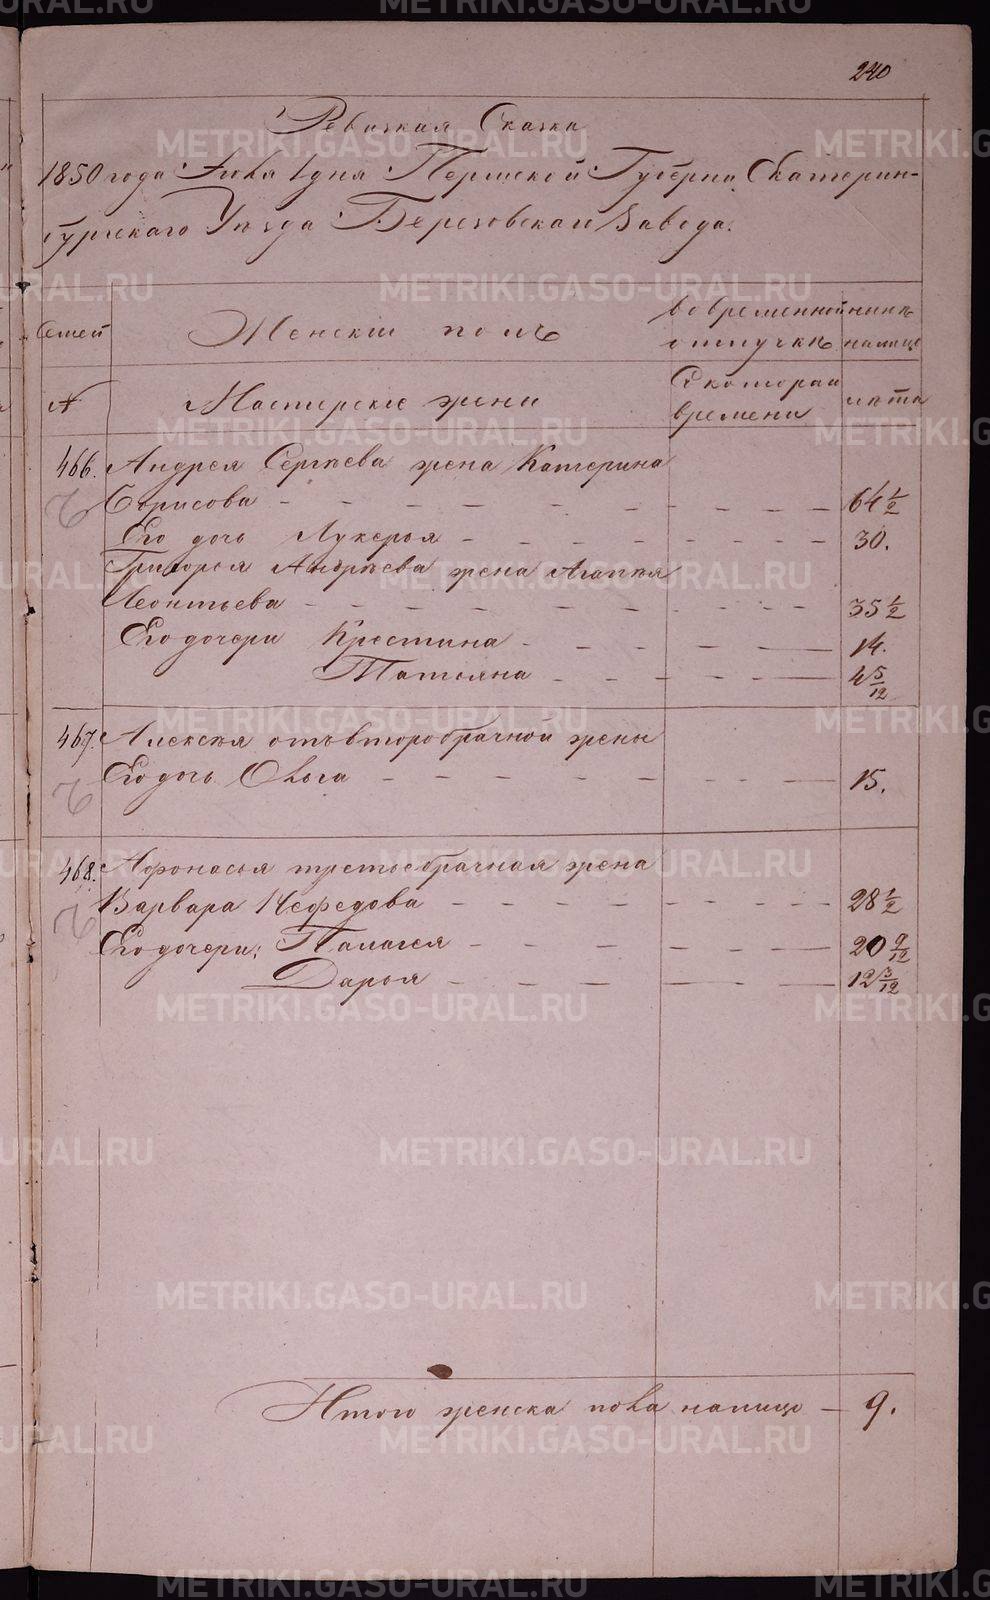 240
Ревизская Сказка
1850 года Июля 1 дня Пермской Губерни Екатерин-
бургскаго Уезда Березовскаго Завода.
Семей
Женскій полъ
во временной
отлучке
ныне
налицо
№
Мастерскіе жены
Съ которая
времени
лета
466.
Андрея Сергеева жена Катерина
Борисова
64 1/2
Его дочь Лукерья
30.
Григорья Андреева жена Агапея
Леонтьева
35 1/2
Его дочери Крестина
14.
Татьяна
4 5/12
467.
Алексея отъ второбрачной жены
Его дочь Ольга
15.
468.
Афонасья третьебрачная жена
Варвара Нефедова
28 1/2
Его дочери: Палагея
20 9/12
Дарья
12 3/12
Итого женска пола налицо — 9.
METRIKI.GASO-URAL.RU